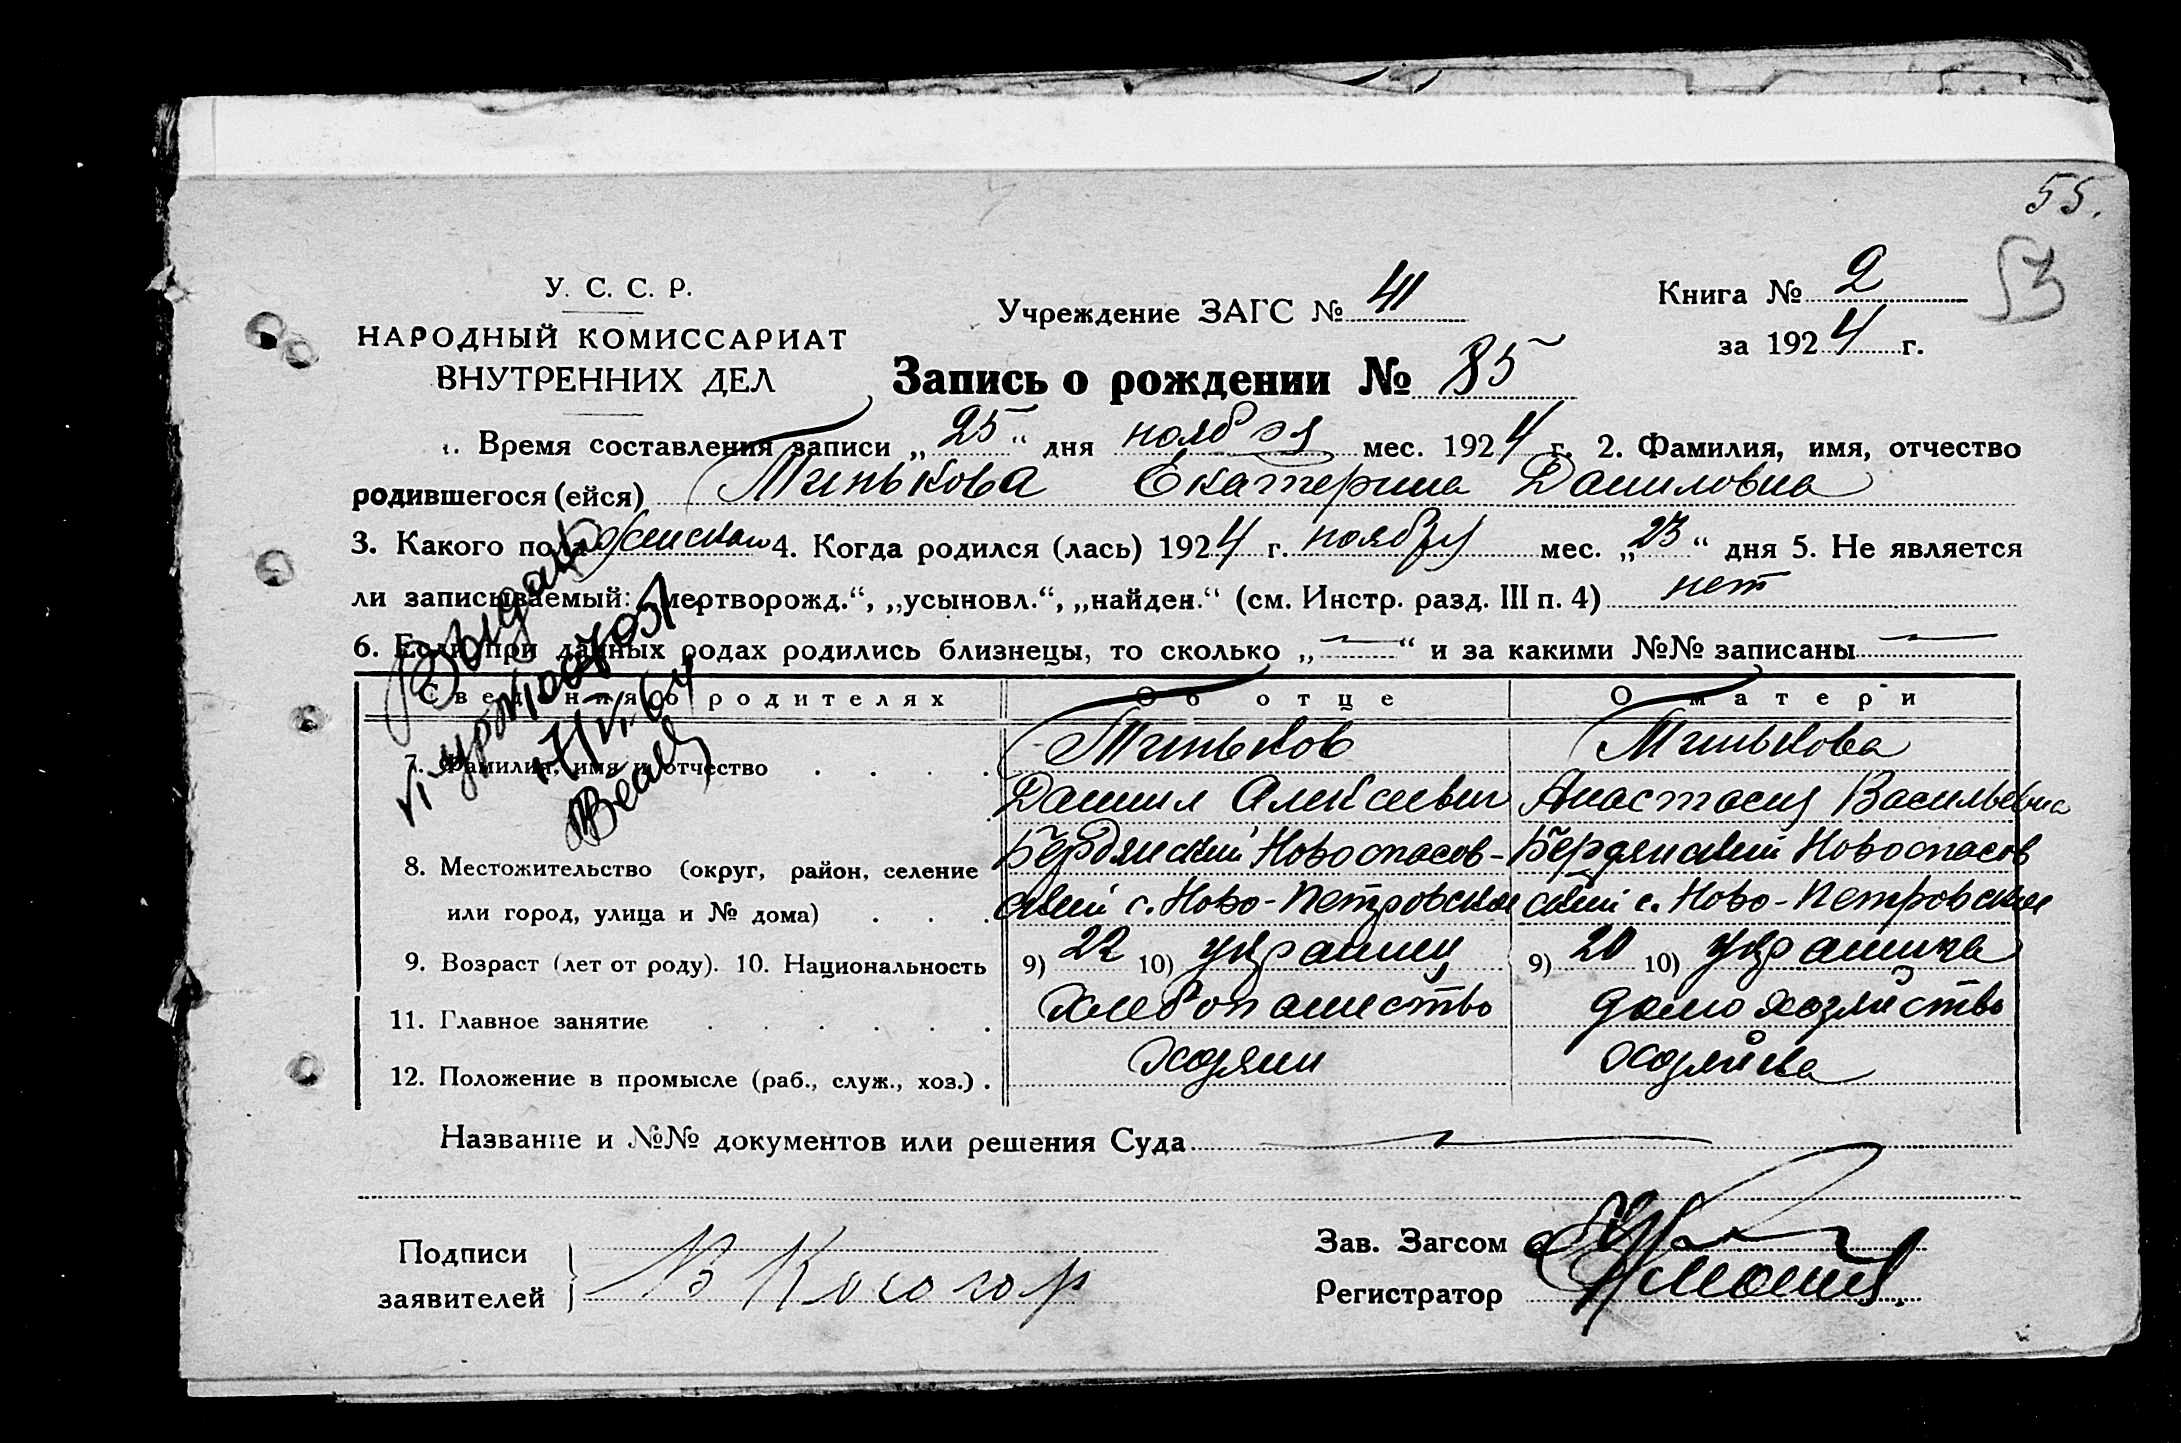 55.
53
У. С. С. Р.
НАРОДНЫЙ КОМИССАРИАТ
ВНУТРЕННИХ ДЕЛ
Учреждение ЗАГС № 41
Книга № 2
за 1924 г.
Запись о рождении № 85
1. Время составления записи „25" дня ноября мес. 1924 г. 2. Фамилия, имя, отчество
родившегося (ейся) Тинькова Екатерина Даниловна
3. Какого пола женского 4. Когда родился (лась) 1924 г. ноября мес. „23" дня 5. Не является
ли записываемый: „мертворожд.", „усыновл.", „найден." (см. Инстр. разд. III п. 4) нет
6. Если при данных родах родились близнецы, то сколько „—" и за какими №№ записаны —
Сведения о родителях Об отце О матери
7. Фамилия, имя и отчество Тиньков Тинькова
Даниил Алексеевич Анастасия Васильевна
Бердянский Новоспасов- Бердянский Новоспасов
8. Местожительство (округ, район, селение
или город, улица и № дома) ский с. Ново-Петровское ский с. Ново-Петровское
9. Возраст (лет от роду). 10. Национальность 9) 22 10) украинец 9) 20 10) украинка
11. Главное занятие хлебопашество домохозяйство
12. Положение в промысле (раб., служ., хоз.) хозяин хозяйка
Название и №№ документов или решения Суда —
Подписи
заявителей
В Косогор
Зав. Загсом
Регистратор
Выдано